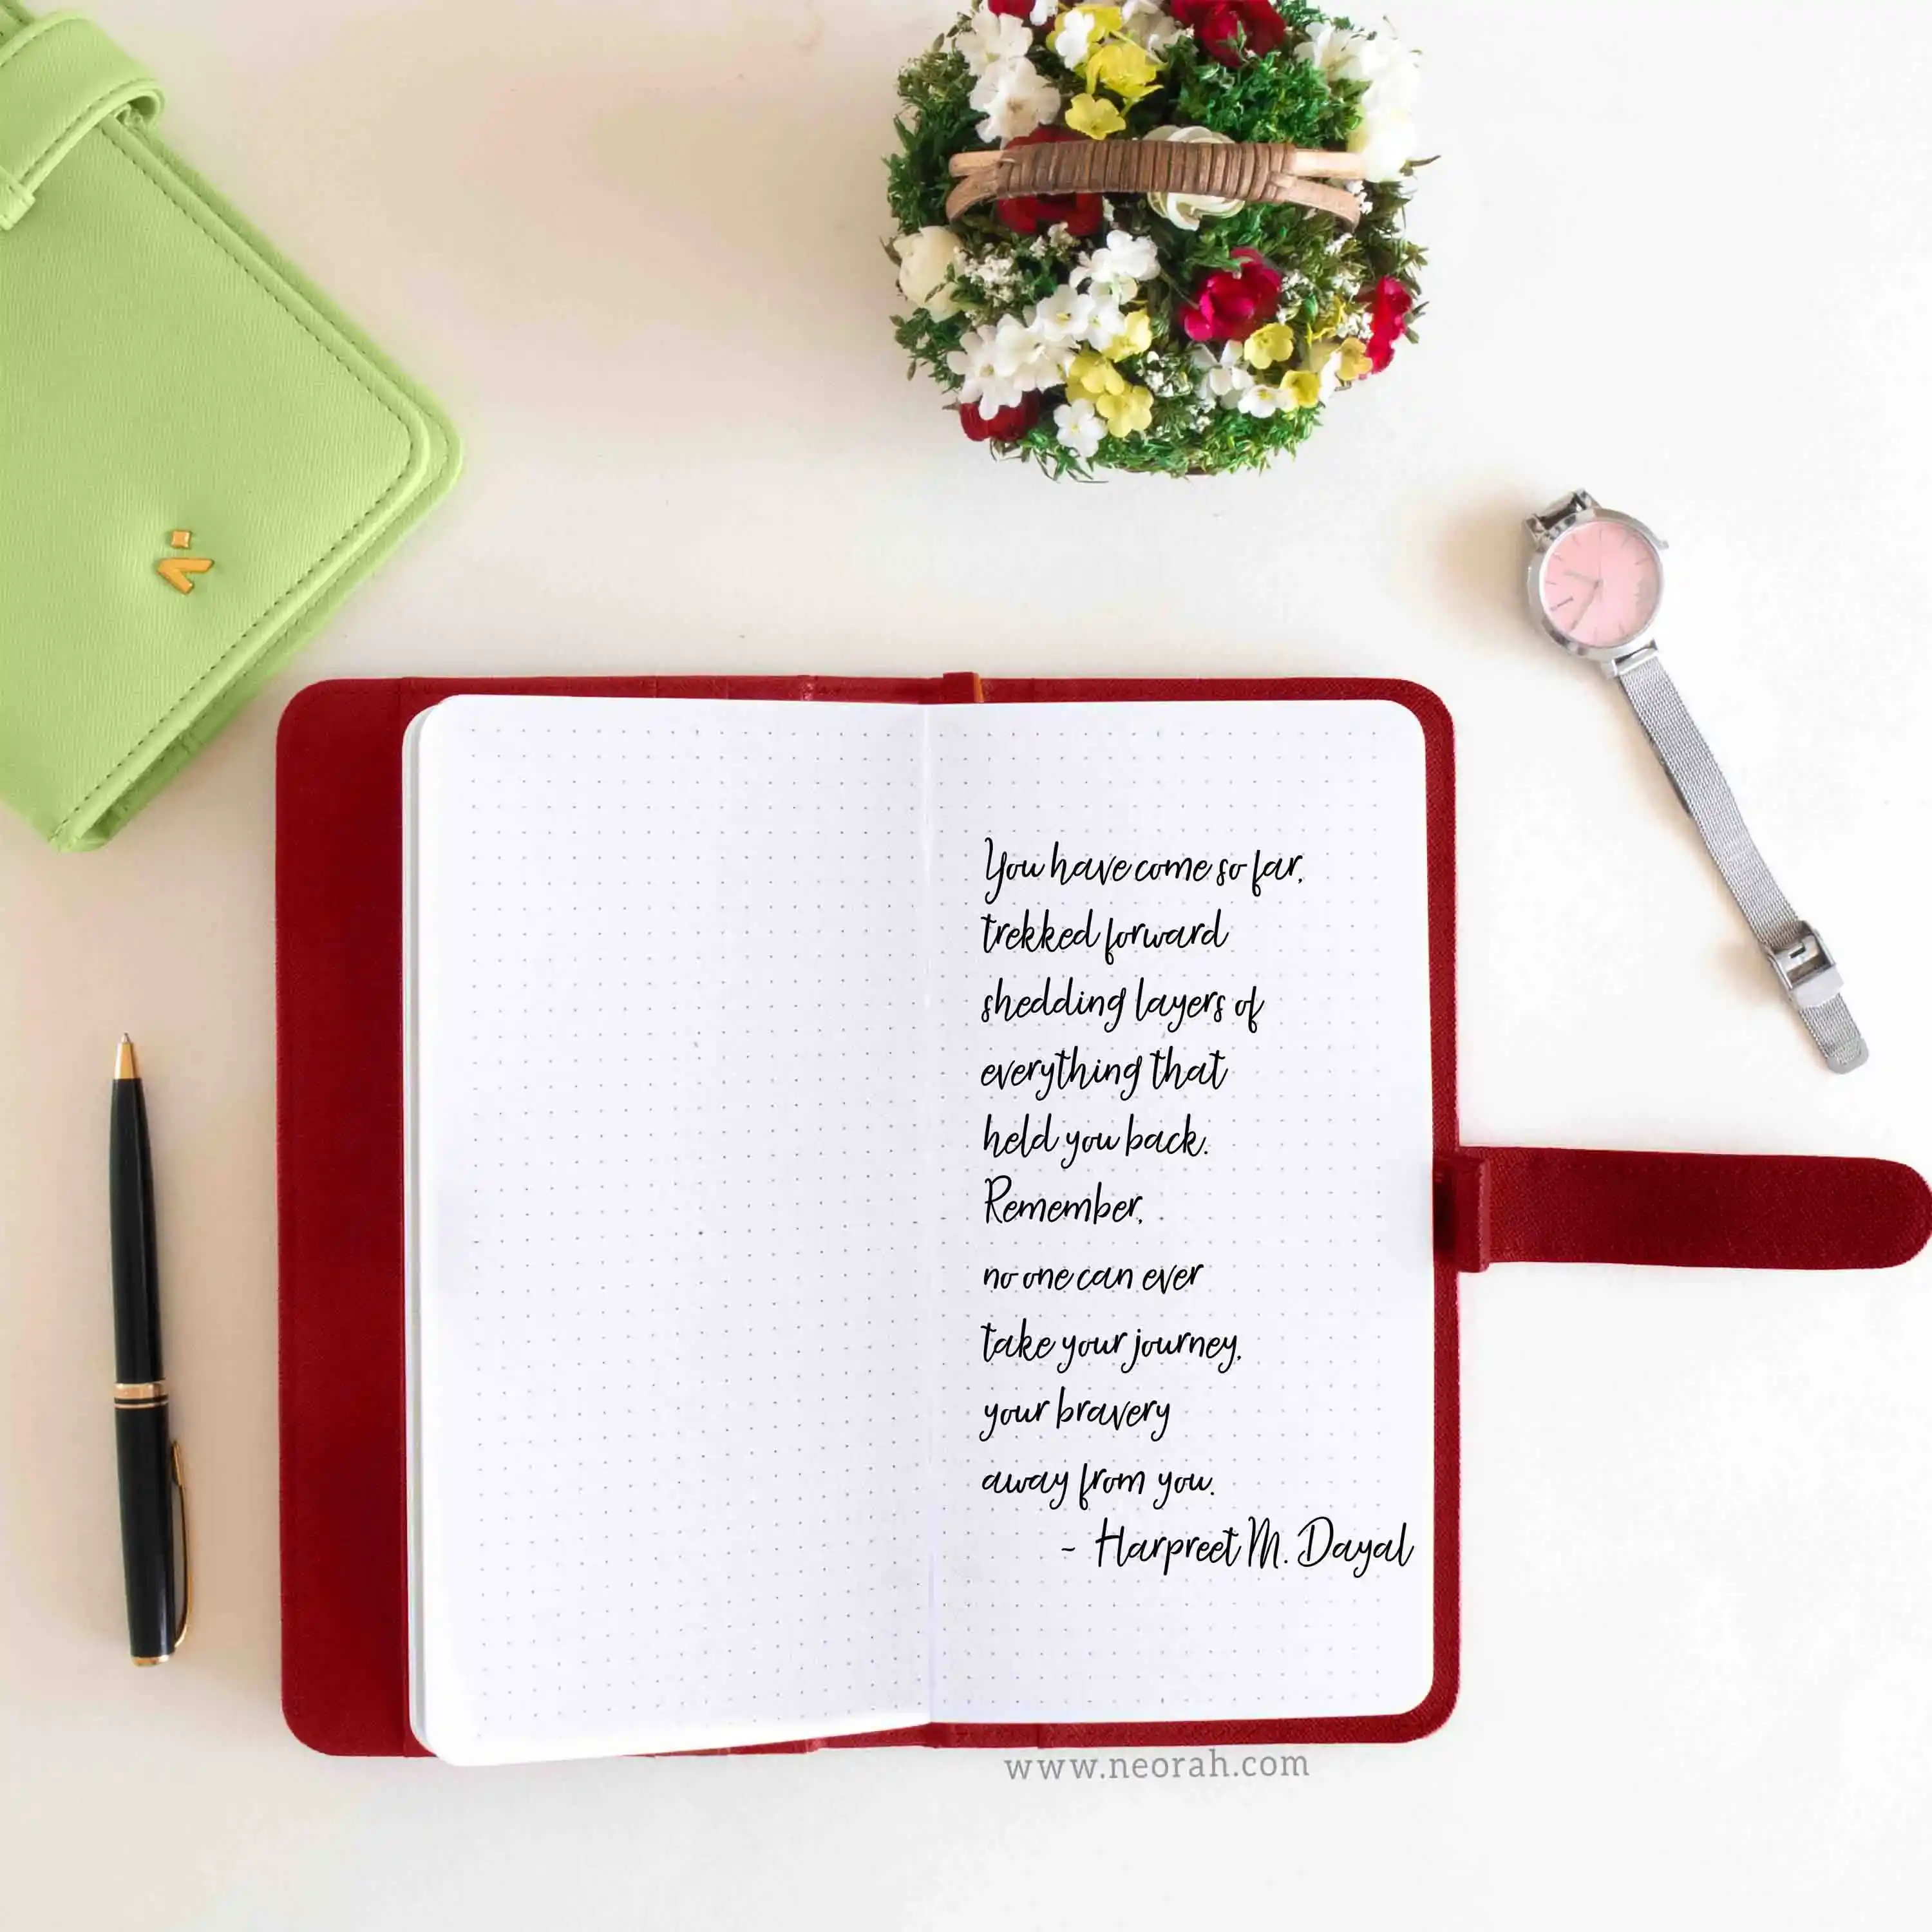 You have come so far,
trekked forward
shedding layers of
everything that
held you back.
Remember,
no one can ever
take your journey,
your bravery
away from you.
- Harpreet M. Dayal
www.neorah.com